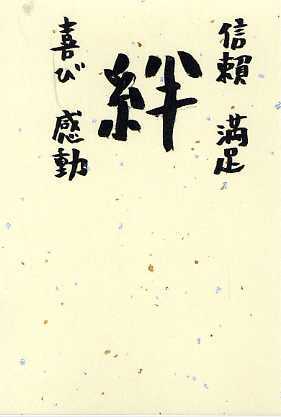 信頼 満足
絆
喜び 感動